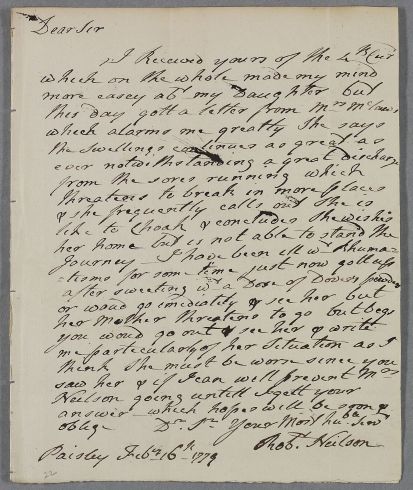 Dear Sir
I Received yours of the 4th Curt
which on the whole made my mind
more easey abt my Daughter but
this day gott a letter from Mrs
which alarms me greatly She says
the Swellings continues as great as
ever notwithstanding a great discharge
from the sores running which
threatens to break in more places
& she frequently calls out She is
like to Choak & concludes She wishes
her home but is not able to stand the
Journey I have been ill wt Rhuma=
=tisms for some time just now gott
after sweeting wt a Dose of Dovers powder
or woud go imediatly & see her but
her Mother threatens to go but begs
you woud go out & see her & write
me particularly of her Situation as I
think She must be worse since you
saw her & if I can will prevent Mrs
Neilson going untill I gett your
answer which hopes will be soon &
oblige Dr Sr Your Most hu: Servt
Robt Neilson
Paisley Feby 16th 1779
22